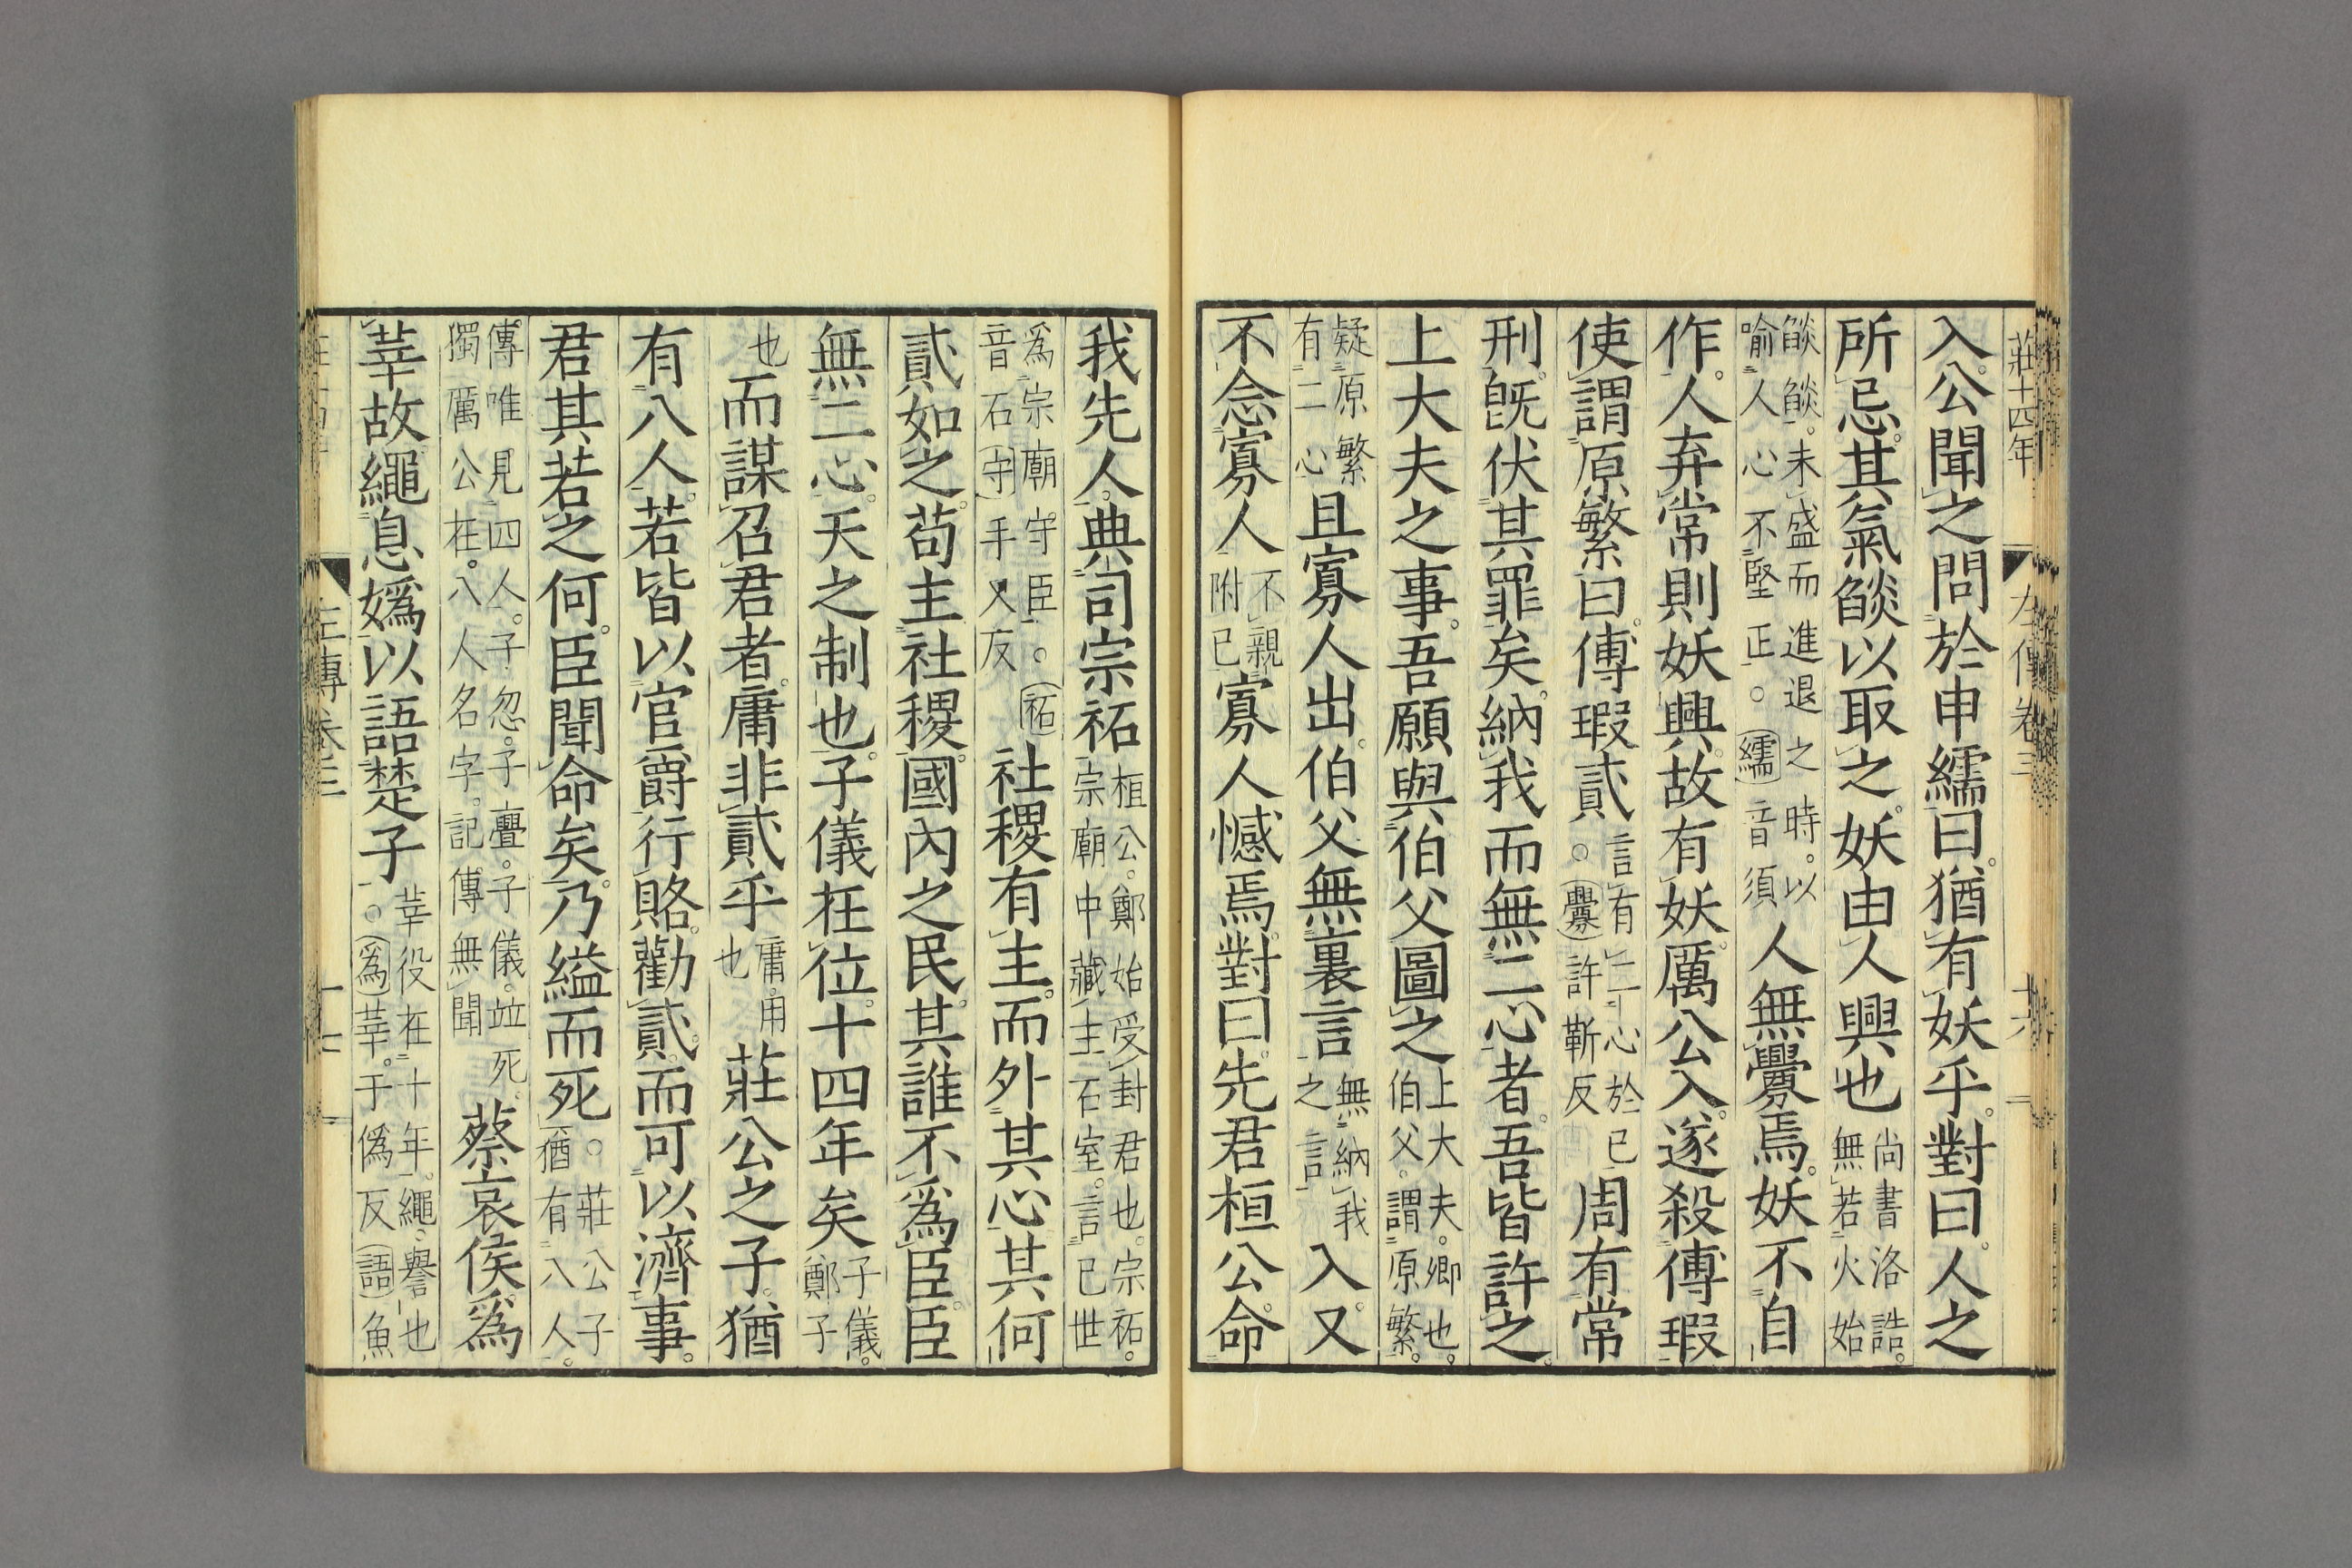 莊十四年 左傳卷三 十六
入公聞之問於申繻曰。猶有妖乎。對曰。人之
所忌。其氣燄以取之。妖由人興也 尚書洛誥。無若火始
燄燄。未盛而進退之時。以喻人心不堅正。○繻音須 人無釁焉。妖不自
作。人弃常則妖興。故有妖。厲公入。遂殺傅瑕
使謂原繁曰。傅瑕貳 言有二心於己。○釁許靳反 周有常
刑。旣伏其罪矣。納我而無二心者。吾皆許之。
上大夫之事。吾願與伯父圖之 上大夫。卿也。伯父。謂原繁。
疑原繁有二心 且寡人出。伯父無裏言 無納我之言 入。又
不念寡人 不親附己 寡人憾焉。對曰。先君桓公。命
我先人。典司宗祏 桓公。鄭始受封君也。宗祏。宗廟中藏主石室。言己世
爲宗廟守臣。○祏音石守手又反 社稷有主。而外其心。其何
貳如之。苟主社稷。國內之民。其誰不爲臣。臣
無二心。天之制也。子儀在位。十四年矣 子儀。鄭子
也 而謀召君者。庸非貳乎 庸。用也 莊公之子。猶
有八人。若皆以官爵行賂。勸貳。而可以濟事。
君其若之何。臣聞命矣。乃縊而死 ○莊公子猶有八人。
傳唯見四人。子忽。子亹。子儀。竝死。獨厲公在。八人名字。記傳無聞 蔡哀侯。爲
莘故繩息嬀以語楚子 莘役在十年。繩。譽也。○爲莘。于僞反語魚
左傳卷三